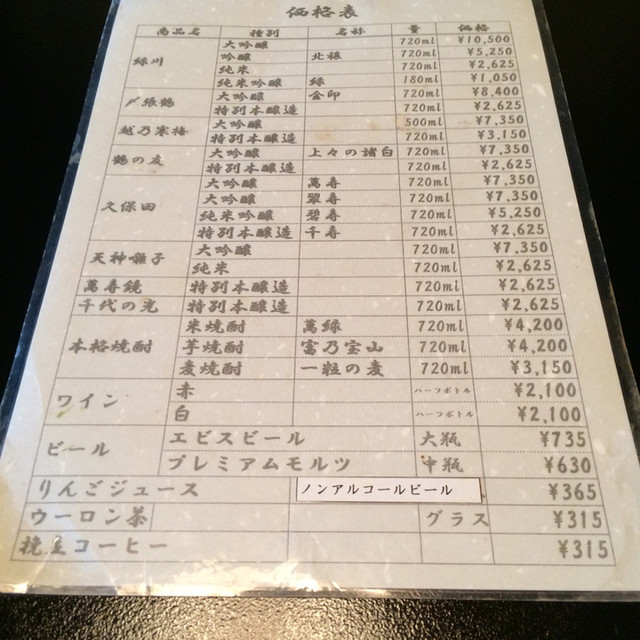 価格表
商品名 種別 名称 量 価格
緑川 大吟醸 720ml ¥10,500
吟醸 北穣 720ml ¥5,250
純米 720ml ¥2,625
純米吟醸 緑 180ml ¥1,050
〆張鶴 大吟醸 金印 720ml ¥8,400
特別本醸造 720ml ¥2,625
越乃寒梅 大吟醸 500ml ¥7,350
特別本醸造 720ml ¥3,150
鶴の友 大吟醸 上々の諸白 720ml ¥7,350
特別本醸造 720ml ¥2,625
久保田 大吟醸 萬寿 720ml ¥7,350
大吟醸 翠寿 720ml ¥7,350
純米吟醸 碧寿 720ml ¥5,250
特別本醸造 千寿 720ml ¥2,625
天神囃子 大吟醸 720ml ¥7,350
純米 720ml ¥2,625
萬寿鏡 特別本醸造 720ml ¥2,625
千代の光 特別本醸造 720ml ¥2,625
本格焼酎 米焼酎 萬緑 720ml ¥4,200
芋焼酎 富乃宝山 720ml ¥4,200
麦焼酎 一粒の麦 720ml ¥3,150
ワイン 赤 ハーフボトル ¥2,100
白 ハーフボトル ¥2,100
ビール ヱビスビール 大瓶 ¥735
プレミアムモルツ 中瓶 ¥630
りんごジュース ノンアルコールビール ¥365
ウーロン茶 グラス ¥315
挽立コーヒー ¥315